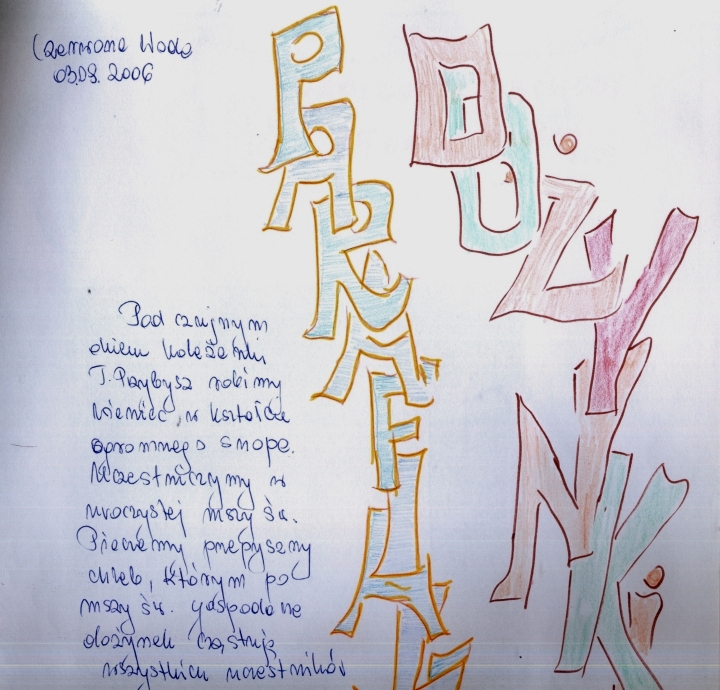 Czerwona Woda
03.09.2006
PARAFIAL
DOŻYNKi
Pod czujnym
okiem koleżanki
T. Przybysz robimy
wieniec, w kształcie
ogromnego snopa.
Uczestniczymy w
uroczystej mszy św.
Pieczemy przepyszny
chleb, którym po
mszy św. gospodarze
dożynek częstują
wszystkich uczestników